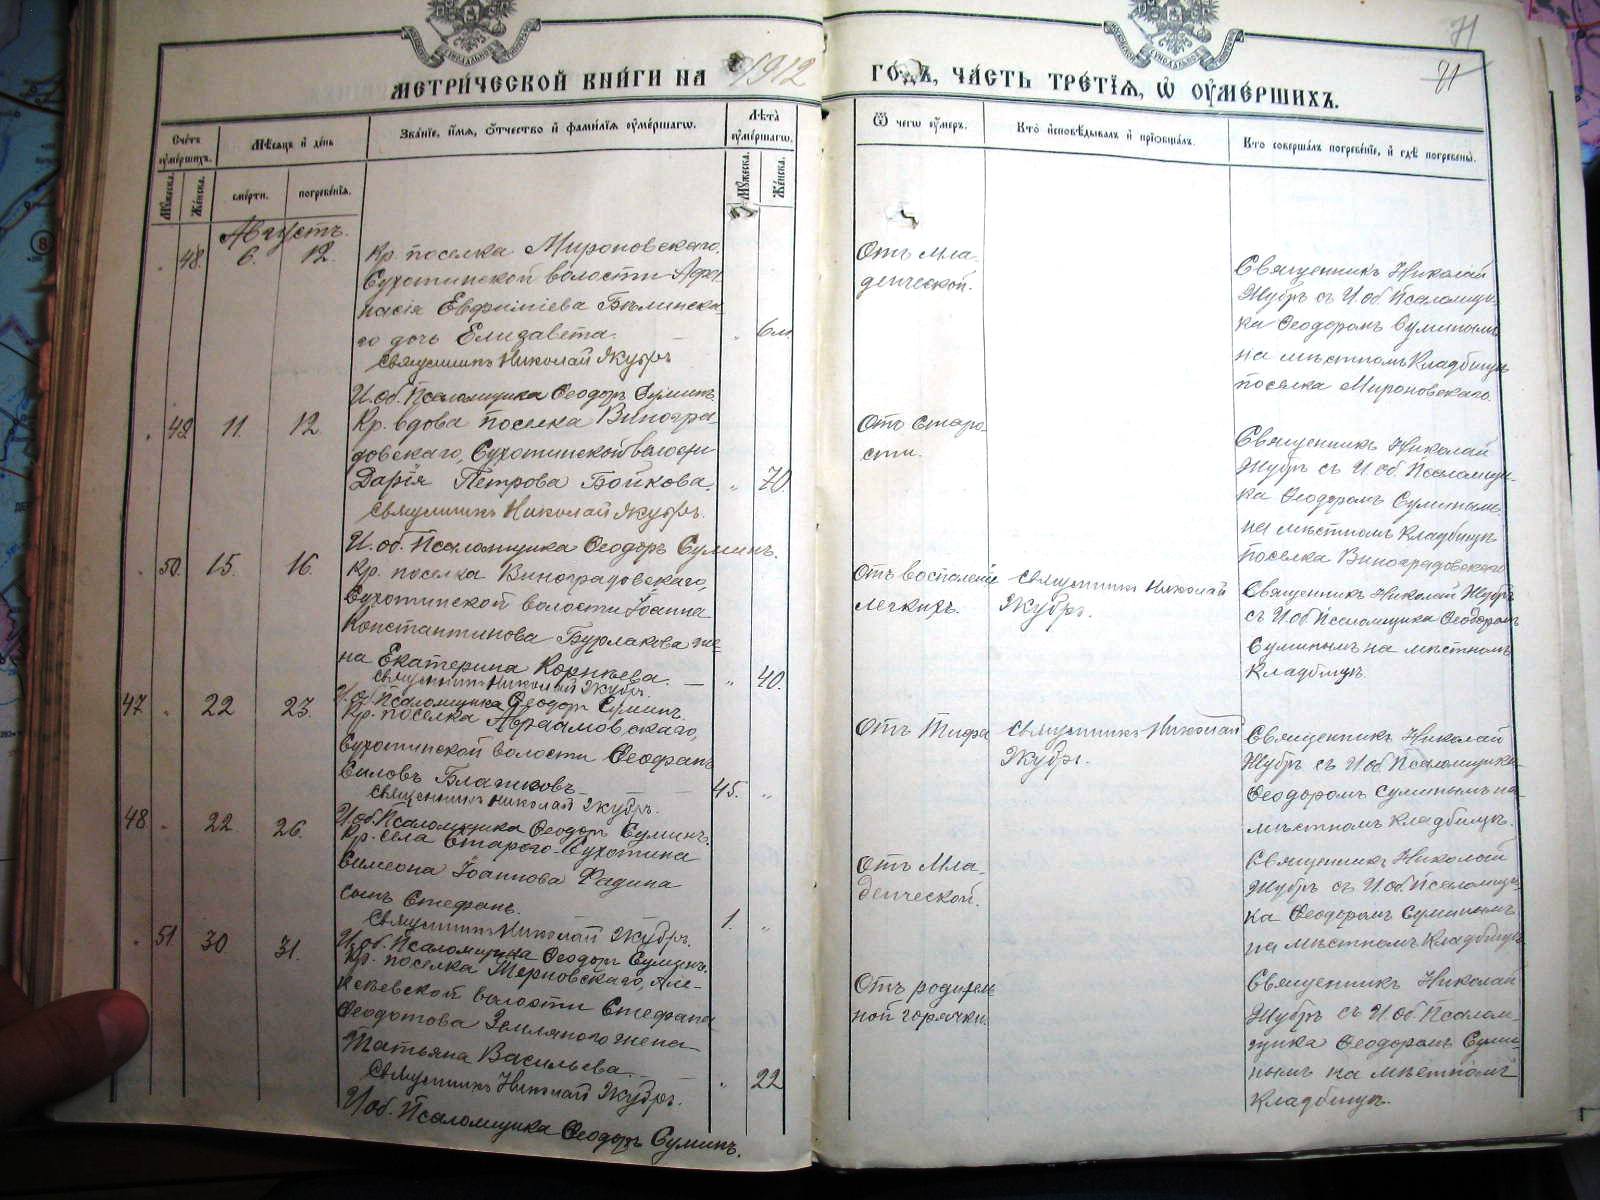 71
71
МЕТРИ́ЧЕСКОЙ КНИ́ГИ НА 1912
ГОДЪ, ЧА́СТЬ ТРЕ́ТІѦ, Ѡ҆ ОУ҆МЕ́РШИХЪ.
Сче́тъ оу҆ме́ршихъ.
Мѣ́сѧцъ и҆ де́нь
Зва́нїе, и҆́мѧ, ѻ҆́тчество и҆ фами́лїѧ оу҆ме́ршагѡ.
Лѣ́та оу҆ме́ршагѡ.
Ѿ чегѡ̀ оу҆́меръ.
Кто̀ и҆сповѣ́дывалъ и҆ прїѻбща́лъ.
Кто соверша́лъ погребе́нїе, и҆ гдѣ̀ погребены̀.
Мꙋ́жеска.
Же́нска.
сме́рти.
погребе́нїѧ.
Мꙋ́жеска.
Же́нска.
Августъ.
48. 6. 12. Кр. поселка Мироновскаго,
Сухотинской волости Афа-
насія Евфиміева Бѣлинска-
го дочь Елизавета. 6м.
Священникъ Николай Якубръ
И. об. Псаломщика Ѳеодоръ Суминъ
Отъ мла-
денческой.
Священникъ Николай
Якубръ съ И. об. Псаломщи-
ка Ѳеодоромъ Суминымъ
на мѣстномъ кладбищѣ
поселка Мироновскаго.
49 11. 12. Кр. вдова поселка Виногра-
довскаго, Сухотинской волости
Дарія Петрова Бойкова. 70.
Священникъ Николай Якубръ.
И. об. Псаломщика Ѳеодоръ Суминъ.
Отъ старо-
сти.
Священникъ Николай
Якубръ съ И. об. Псаломщи-
ка Ѳеодоромъ Суминымъ
на мѣстномъ кладбищѣ
поселка Виноградовскаго
50. 15. 16. Кр. поселка Виноградовскаго,
Сухотинской волости Іоанна
Константинова Бурлакова же-
на Екатерина Корнѣева. 40.
Священникъ Николай Якубръ.
И. об. Псаломщика Ѳеодоръ Суминъ.
Отъ воспаленіе
легкихъ.
Священникъ Николай
Якубръ.
Священникъ Николай Якубръ
съ И. об. Псаломщика Ѳеодоромъ
Суминымъ на мѣстномъ
кладбищѣ.
47 22 23. Кр. поселка Авраамовскаго,
Сухотинской волости Ѳеофанъ
Силовъ 45.
Священникъ Николай Якубръ.
И. об. Псаломщика Ѳеодоръ Суминъ.
Отъ тифа
Священникъ Николай
Якубръ.
Священникъ Николай
Якубръ съ И. об. Псаломщика
Ѳеодоромъ Суминымъ на
мѣстномъ кладбищѣ.
48 22. 26. Кр. села Старого-Сухотина
Симеона Іоаннова Фадина
сынъ Стефанъ. 1.
Священникъ Николай Якубръ.
И. об. Псаломщика Ѳеодоръ Суминъ.
Отъ мла-
денческой.
Священникъ Николай
Якубръ съ И. об. Псаломщи-
ка Ѳеодоромъ Суминымъ
на мѣстномъ кладбищѣ.
51 30. 31. Кр. поселка Терновскаго, Але-
ксѣевской волости Стефана
Ѳеодотова Земляного жена
Татьяна Васильева. 22
Священникъ Николай Якубръ.
И об. Псаломщика Ѳеодоръ Суминъ.
Отъ родиль-
ной горячки.
Священникъ Николай
Якубръ съ И. об. Псалом-
щика Ѳеодоромъ Суми-
нымъ на мѣстномъ
кладбищѣ.